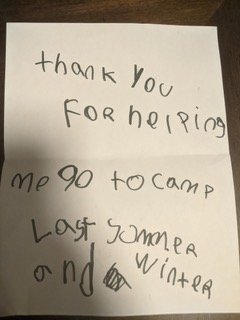 thank you
For helping
me go to camp
Last sommer
and winter